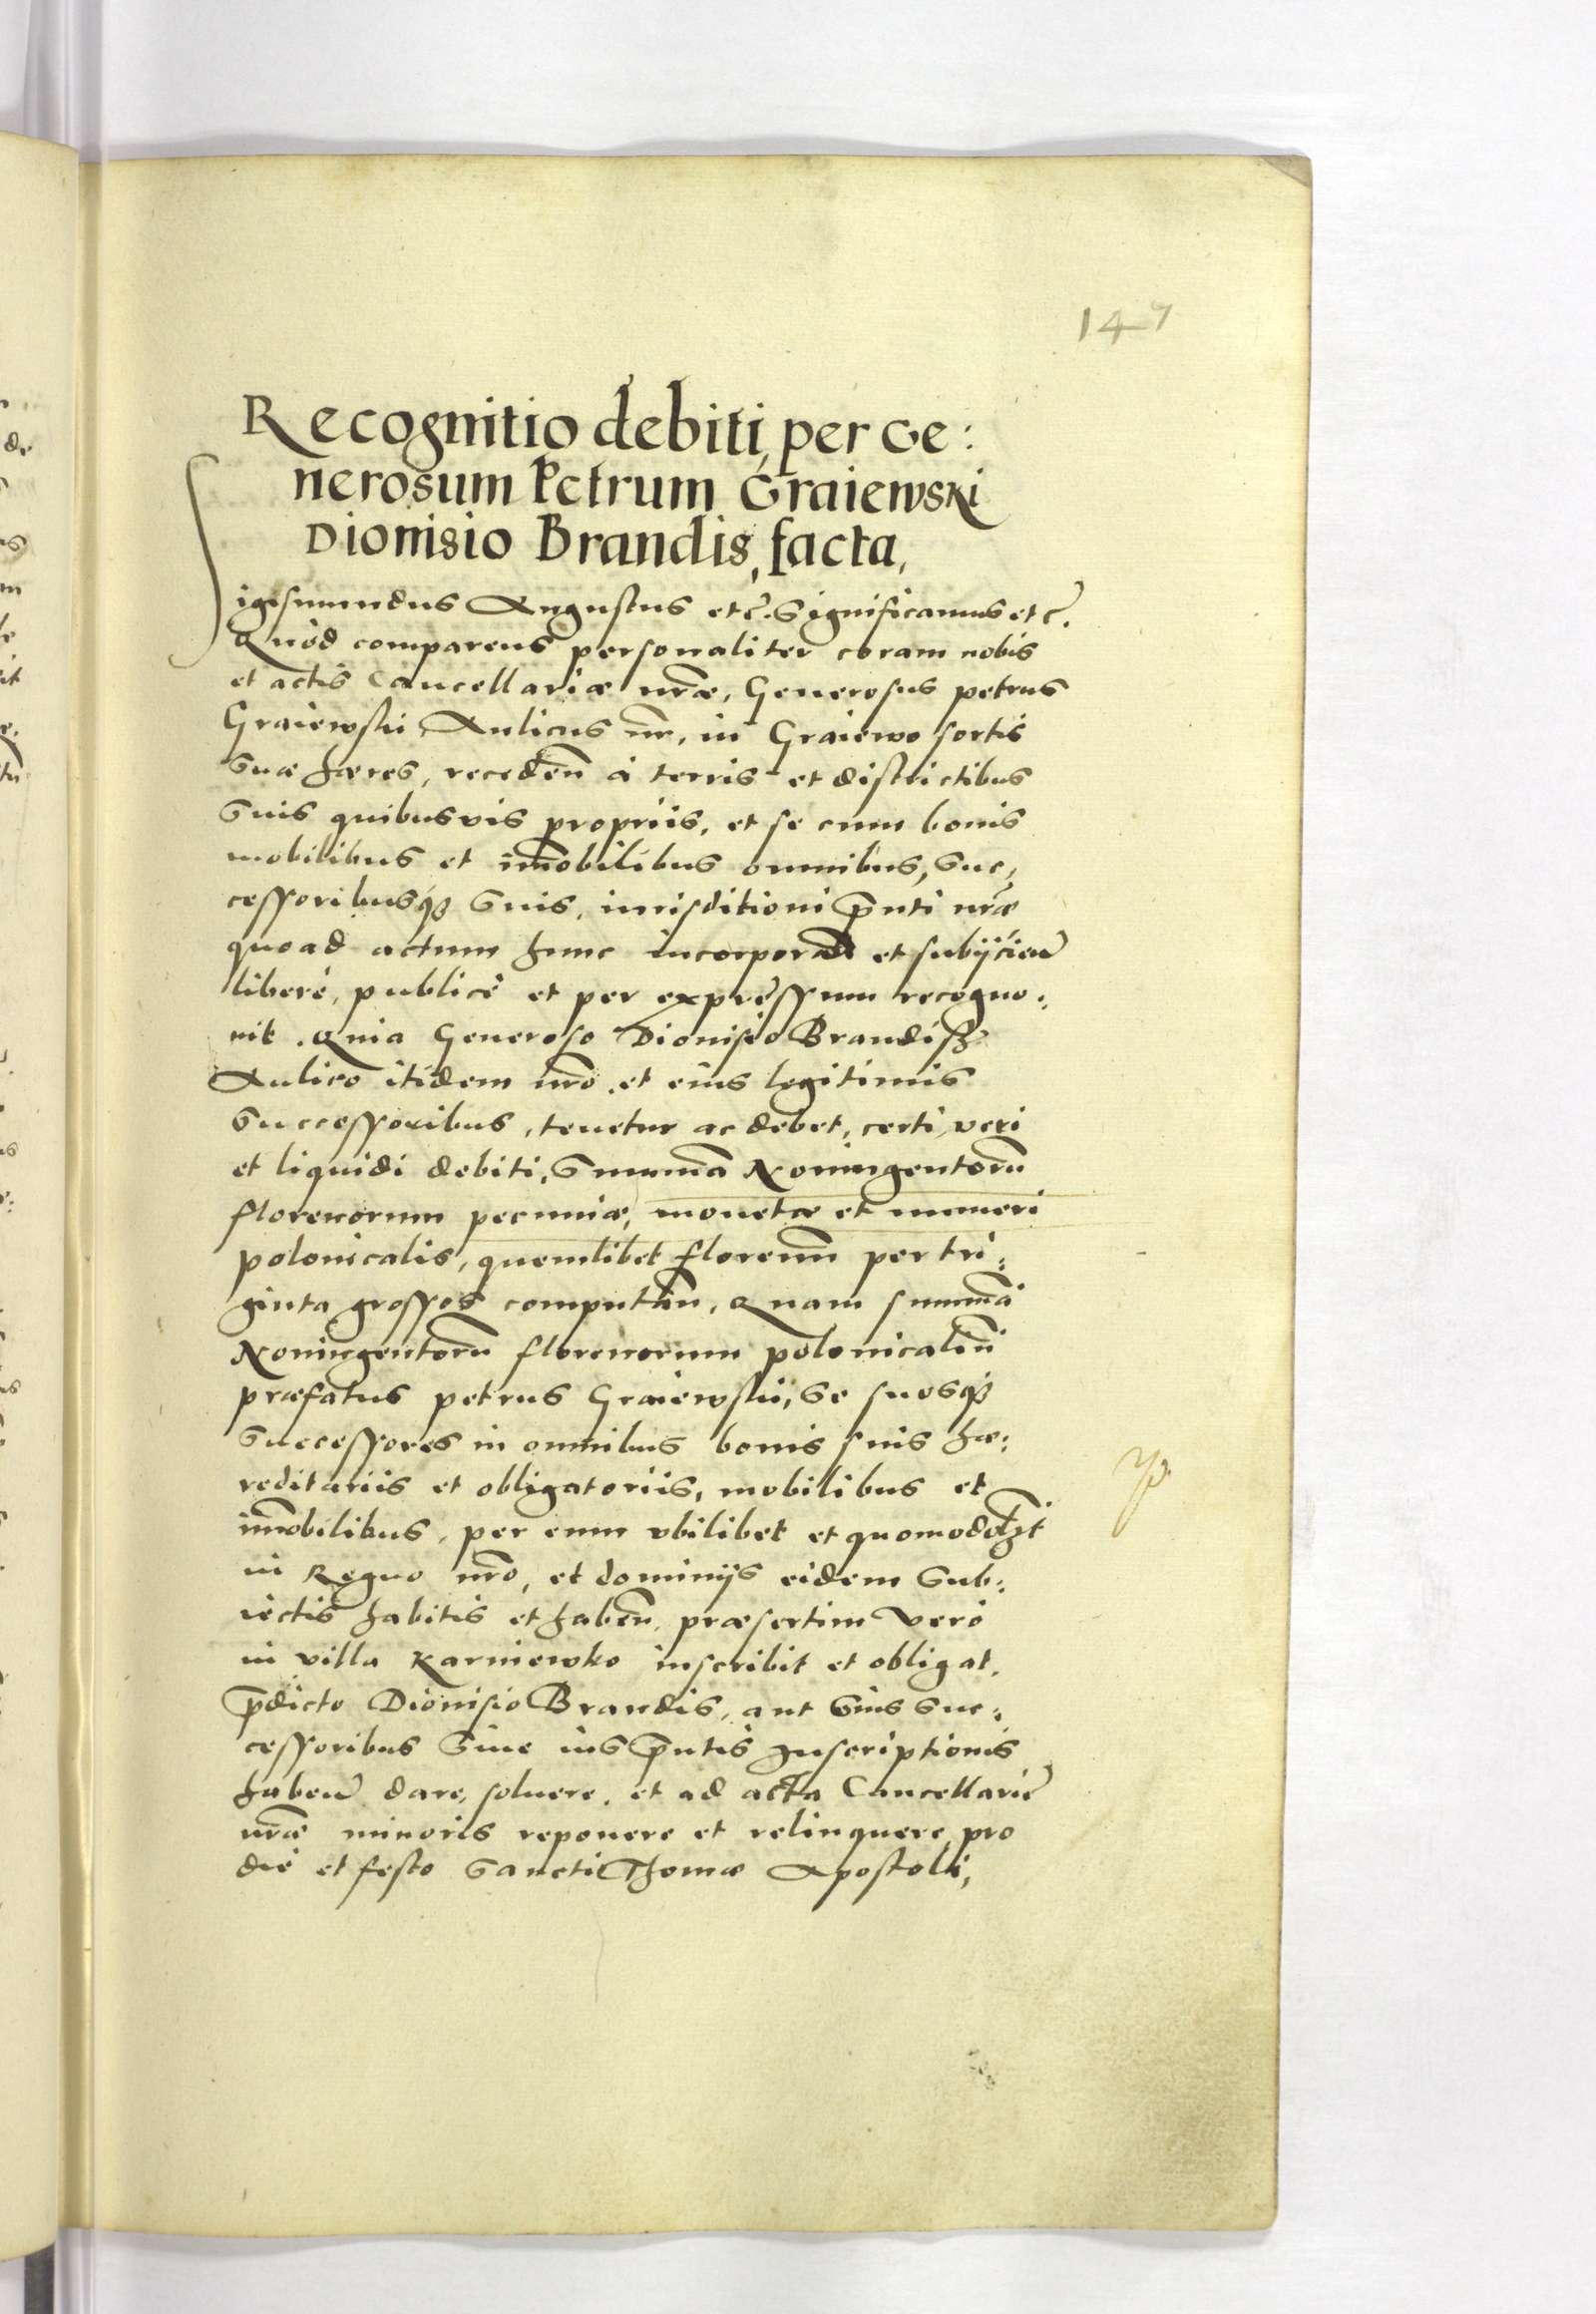 147
Recognitio debiti, per Ge:
nerosum Petrum Graiewski
Dionisio Brandis, facta,
Sigismundus Augustus etc̃. Significamus etc̃.
Quod comparens personaliter coram nobis
et actis Cancellariæ nr̃æ, Generosus petrus
Graiewski Aulicus nr̃, in Graiewo sortis
Suæ hæres, receden̄ à terris et districtibus
Suis quibusvis propriis, et se cum bonis
mobilibus et im̄obilibus omnibus, Suc,
cessoribusqȝ Suis, iurisditioni p̄nti nr̃æ
quoad actum hunc incorporań et subijcień
liberè, publicè et per expressum recogno:
uit. Quia Generoso Dionisio Brandisz
Aulico itidem nr̃o et eius legitimis
Successoribus, tenetur ac debet, certi, veri
et liquidi debiti, Summā Noningentorū
florenorum pecuniæ, monetæ et numeri
polonicalis, quemlibet florenū per tri:
ginta grossos computań, Quam summā
Noningentorū florenorum polonicaliū
præfatus petrus Graiewski, Se suosqȝ
Successores in omnibus bonis suis hæ:
reditariis et obligatoriis, mobilibus et
im̄obilibus, per eum vbilibet et quomodolȝt
in Regno nr̃o, et dominijs eidem Sub:
iectis habitis et haben̄, præsertim vero
in villa Karniewko inscribit et obligat,
p̄dicto Dionisio Brandis, aut Eius Suc:
cessoribus Siue ius p̄ntis Inscriptionis
habeń dare, soluere, et ad acta Cancellarie
nr̃æ minoris reponere et relinquere, pro
die et festo Sancti Thomæ Apostoli,